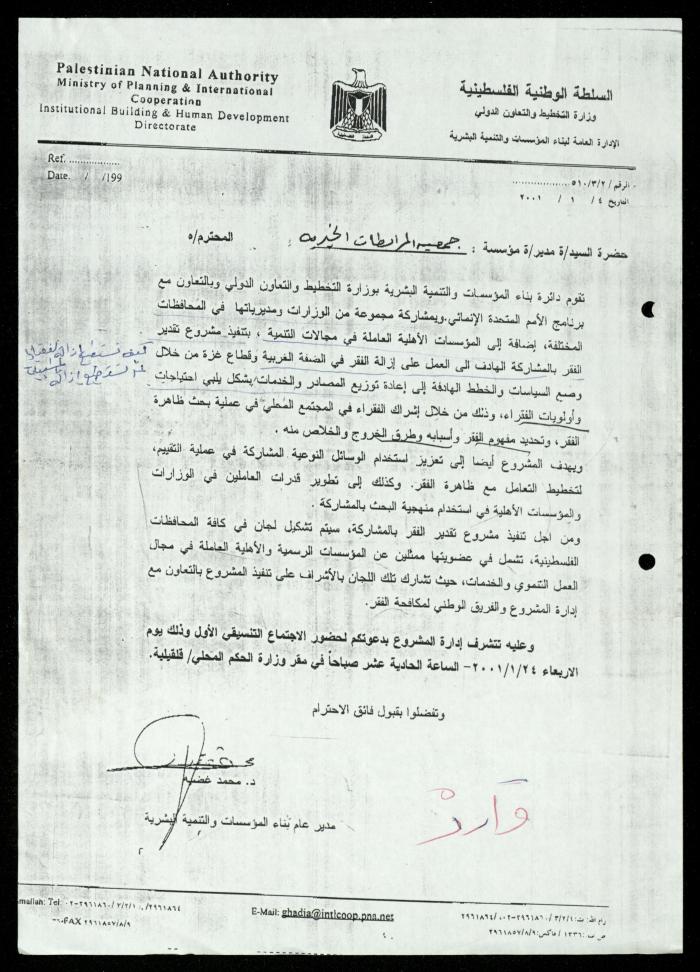 Palestinian National Authority
Ministry of Planning & International
Cooperation
Institutional Building & Human Development
Directorate
السلطة الوطنية الفلسطينية
وزارة التخطيط والتعاون الدولي
الإدارة العامة لبناء المؤسسات والتنمية البشرية
Ref. ..................
Date. / /199
الرقم / ٥١٠/٣/٢ ...................
التاريخ ٤ / ١ / ٢٠٠١
حضرة السيد/ة مدير/ة مؤسسة : جمعية المرابطات الخيرية المحترم/ه
تقوم دائرة بناء المؤسسات والتنمية البشرية بوزارة التخطيط والتعاون الدولي وبالتعاون مع
برنامج الأمم المتحدة الإنمائي.وبمشاركة مجموعة من الوزارات ومديرياتها في المحافظات
المختلفة، إضافة إلى المؤسسات الأهلية العاملة في مجالات التنمية ، بتنفيذ مشروع تقدير
الفقر بالمشاركة الهادف الى العمل على إزالة الفقر في الضفة الغربية وقطاع غزة من خلال
وضع السياسات والخطط الهادفة إلى إعادة توزيع المصادر والخدمات بشكل يلبي احتياجات
وأولويات الفقراء، وذلك من خلال إشراك الفقراء في المجتمع المحلي في عملية بحث ظاهرة
الفقر، وتحديد مفهوم الفقر وأسبابه وطرق الخروج والخلاص منه .
ويهدف المشروع أيضا إلى تعزيز استخدام الوسائل النوعية المشاركة في عملية التقييم،
لتخطيط التعامل مع ظاهرة الفقر. وكذلك إلى تطوير قدرات العاملين في الوزارات
والمؤسسات الأهلية في استخدام منهجية البحث بالمشاركة .
ومن اجل تنفيذ مشروع تقدير الفقر بالمشاركة، سيتم تشكيل لجان في كافة المحافظات
الفلسطينية، تشمل في عضويتها ممثلين عن المؤسسات الرسمية والأهلية العاملة في مجال
العمل التنموي والخدمات، حيث تشارك تلك اللجان بالأشراف على تنفيذ المشروع بالتعاون مع
إدارة المشروع والفريق الوطني لمكافحة الفقر.
وعليه تتشرف إدارة المشروع بدعوتكم لحضور الاجتماع التنسيقي الأول وذلك يوم
الاربعاء ٢٠٠١/١/٢٤- الساعة الحادية عشر صباحاً في مقر وزارة الحكم المحلي/ قلقيلية.
وتفضلوا بقبول فائق الاحترام
د. محمد غضية
مدير عام بناء المؤسسات والتنمية البشرية
وارد
amallah: Tel:
E-Mail: ghadia@intlcoop.pna.net
FAX ٢٩٦١٨٥٧/٨/٩
ص.ب: ١٣٣٦ / فاكس: ٢٩٦١٨٥٧/٨/٩